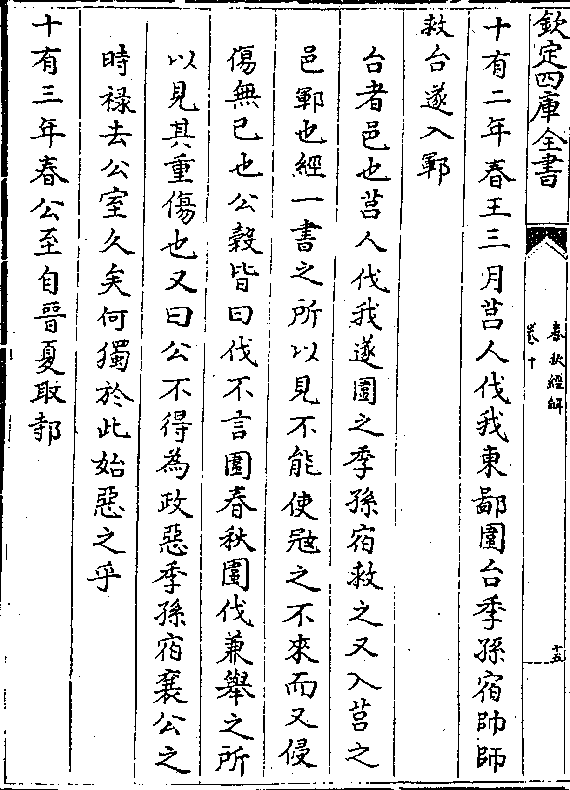 欽定四庫全書
春秋經解
卷十
十五
十有二年春王三月莒人伐我東鄙圍台季孫宿帥師
救台遂入鄆
台者邑也莒人伐我遂圍之季孫宿救之又入莒之
邑鄆也經一書之所以見不能使冦之不來而又侵
傷無已也公榖皆曰伐不言圍春秋圍伐兼舉之所
以見其重傷也又曰公不得為政惡季孫宿襄公之
時祿去公室久矣何獨於此始惡之乎
十有三年春公至自晉夏取邿